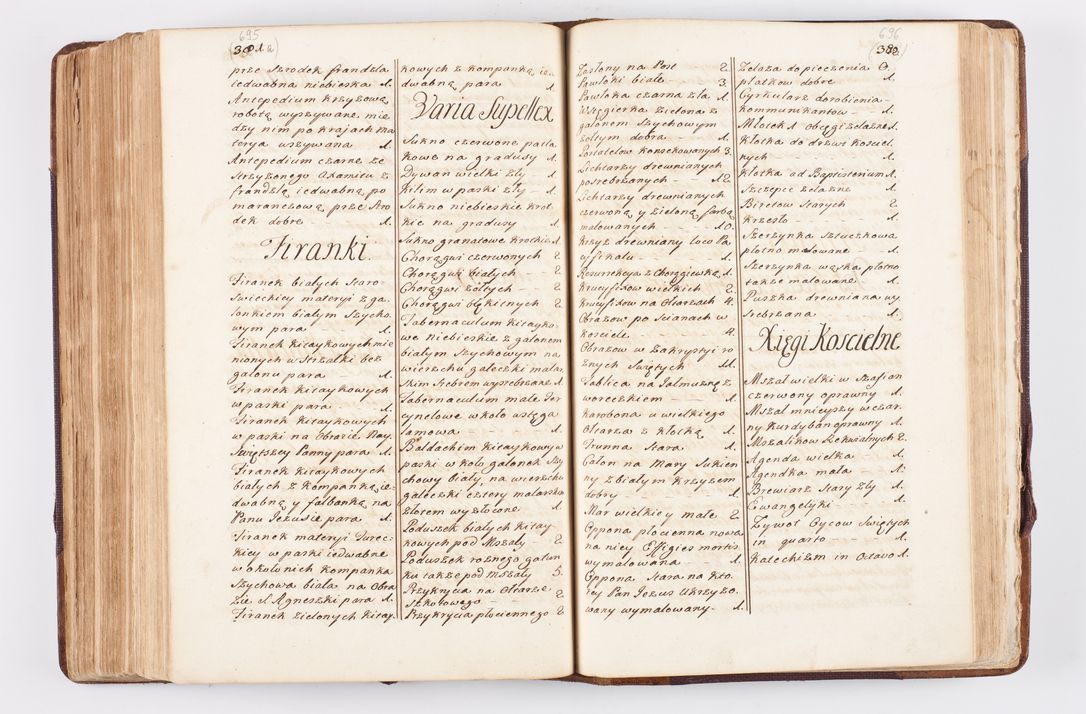 695
381a)
prze Szrodek frandzla
iedwabna niebieska 1.
Antepedium krzyzową
robotą wyszywane mie
dzy nim po krajach ma
terya wszywana 1.
Antepedium czarne ze
Strzyzonego Axamitu z
frandzlą iedwabną po
maranczową prze Szro
dek dobre 1.
Firanki.
Firanek białych Staro
swieckiey materyi z ga
lonkiem białym Szycho
wym para 1.
Firanek kitaykowych mie
nionych w Strzałki bez
galonu para 1.
Firanek kitaykowych
w paski para 1.
Firanek kitaykowych
w paski na Obrazie Nay
Swiętszey Panny para 1.
Firanek kitaykowych
białych z kompanką ie
dwabną y falbanką na
Panu Jezusie para 1.
Firanek materyi Turec
kiey w paski iedwabne
w około nich kompanka
Szychowa biała na Obra
zie S. Agneszki para 1.
Firanek zielonych kitay
kowych z kompanką ie
dwabną para 1.
Varia Supellex
Sukno czerwone patla
kowe na gradusy 1.
Dywan wielki zły 1.
Kilim w paski zły 1.
Sukno niebieskie krot
kie na gradusy 1.
Sukno granatowe krotkie 1.
Chorągwi czerwonych 2
Chorągwi białych 2
Chorągwi zołtych 2
Chorągwi błękitnych 2
Tabernaculum kitayko
we niebieskie z galonem
białym Szychowym na
wierzchu gałeczki malar
skim Srebrem wysrebrzane 1.
Tabernaculum małe Ter
cynelowe w koło wstęga
lamowa 1.
Baldachim kitaykowy w
paski w koło galonek Szy
chowy biały, na wierzchu
gałeczki cztery malarskim
złotem wyzłocone 1.
Poduszek białych kitay
kowych pod Mszały 2
Poduszek roznego gatun
ku także pod Mszały 5.
Przykrycia na Ołtarze
Szkołowego
Przykrycia płociennego 2
696
382
Zasłony na Post 2.
Pawłoki białe 3.
Pawłoka czarna zła 1.
Węgierka zielona z
galonem Szychowym
zołtym dobra 1.
Portatelow konsekowanych 3.
Lichtarzy drewnianych
posrebrzanych 12
Lichtarzy drewnianych
czerwoną y zieloną farbą
malowanych 10.
Krzyz drewniany loco Pa
cyfikału 1.
Resurrekcya z Chorągiewką 1.
Krucyfixow wielkich 2.
Krucyfixow na Ołtarzach 4.
Obrazow po Scianach w
kosciele 4.
Obrazow w Zakrystyi ro
znych Swiętych 11.
Tablica na Jałmuznę z
woreczkiem 1.
Karobona u wielkiego
Ołtarza z kłotką 1.
Trunna Stara 1.
Całon na Mary Sukien
ny z białym krzyzem
dobry 1.
Mar wielkiey małe 2.
Oppona płocienna nowa
na niey Effigies mortis
wymalowana 1.
Oppona Stara na kto
rey Pan Jezus Ukrzyzo
wany wymalowany 1.
Zelaza do pieczenia O.
płatkow dobre 1.
Cyrkularz do robienia
kommunikantow 1.
Młotek 1 obcęgi zelazne 1.
Kłotka do drzwi kosciel
nych 1.
Kłotka od Baptisterium 1.
Szczypce zelazne 1.
Biretow Starych 2
krzesło 1.
Szerzynka Sztuczkowa
płotno malowane 1.
Szerzynka wąska płotno
także malowane 1.
Puszka drewniana wy
srebrzana 1.
Xięgi Koscielne
Mszał wielki w Szafian
czerwony oprawny 1.
Mszał mnieyszy w czar
ny kurdyban oprawny 1.
Mszalikow Rekwialnych 2.
Agenda wielka 1.
Agendka mała 1.
Brewiarz Stary zły 1.
Ewangelyki 1.
Zywot Oycow Swiętych
in quarto 1.
Katechizm in Octavo 1.